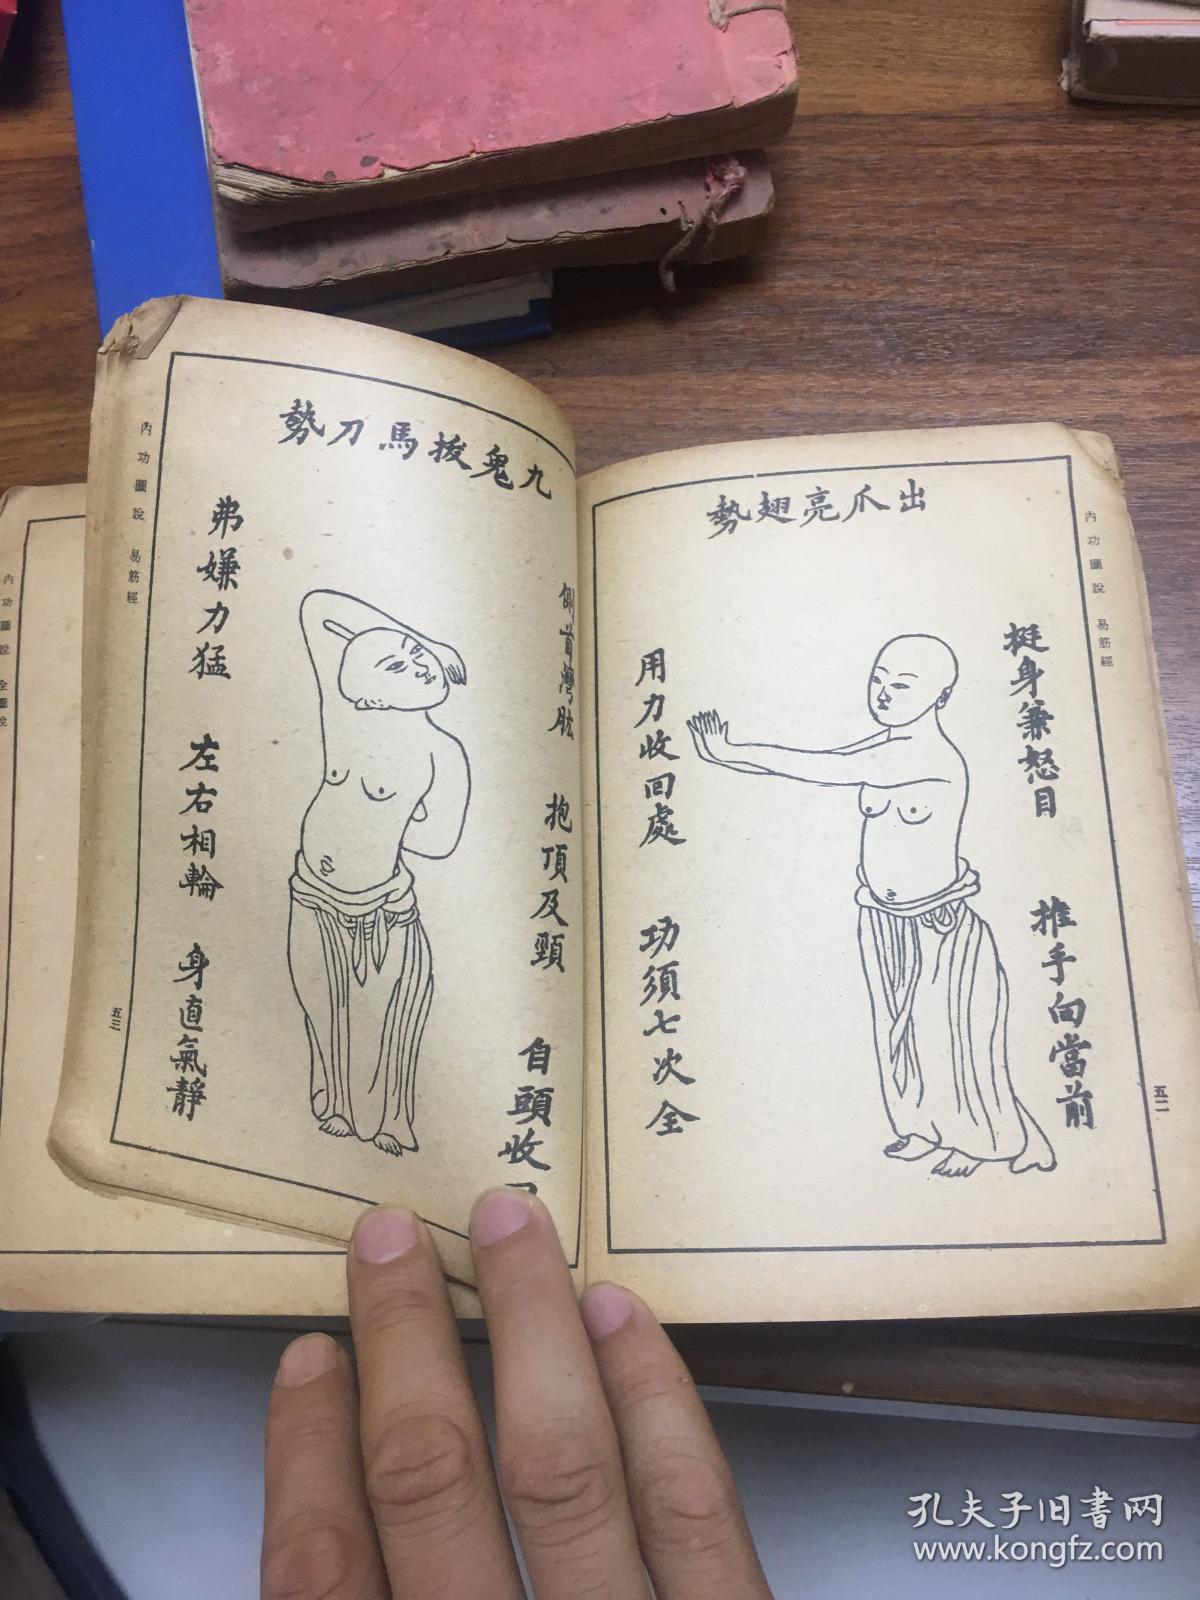 出爪亮翅勢
挺身兼怒目
推手向當前
用力收回處
功須七次全
內功圖說 易筋經
五二
九鬼拔馬刀勢
側首灣肱
抱頂及頸
自頭收
弗嫌力猛
左右相輪
身直氣靜
內功圖說 易筋經
五三
內功圖說 全圖說
孔夫子旧书网
www.kongfz.com